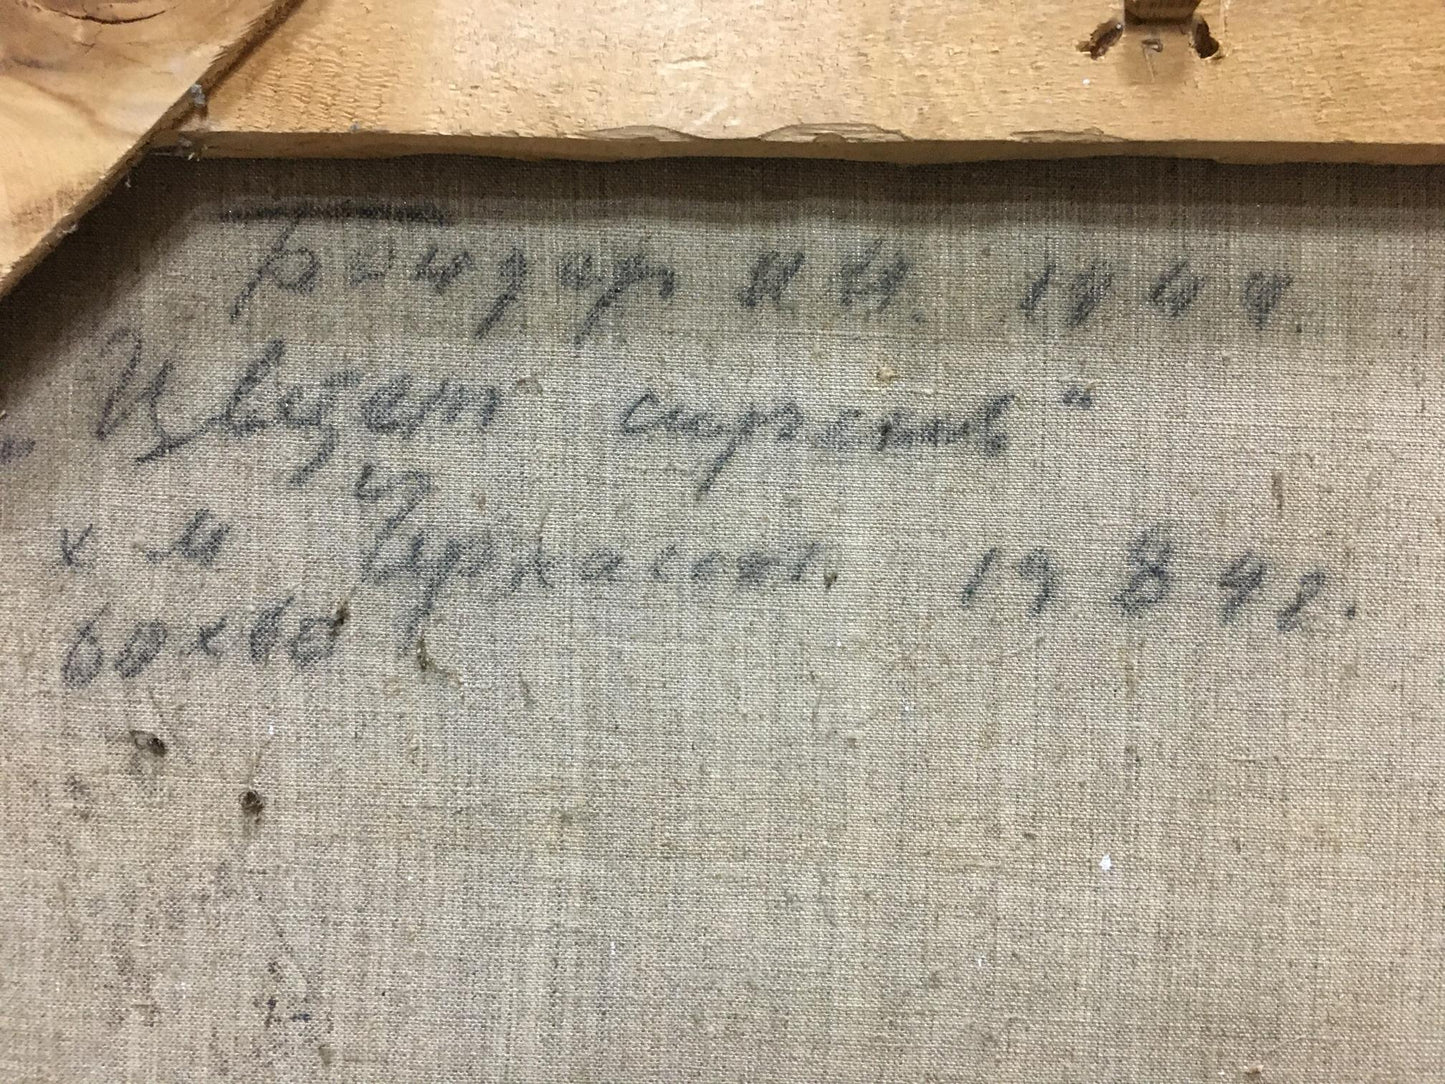 Бондарь Н.Н. 1944.
„Цветет сирень“
х м г. Черкассы, 1984г.
60х80